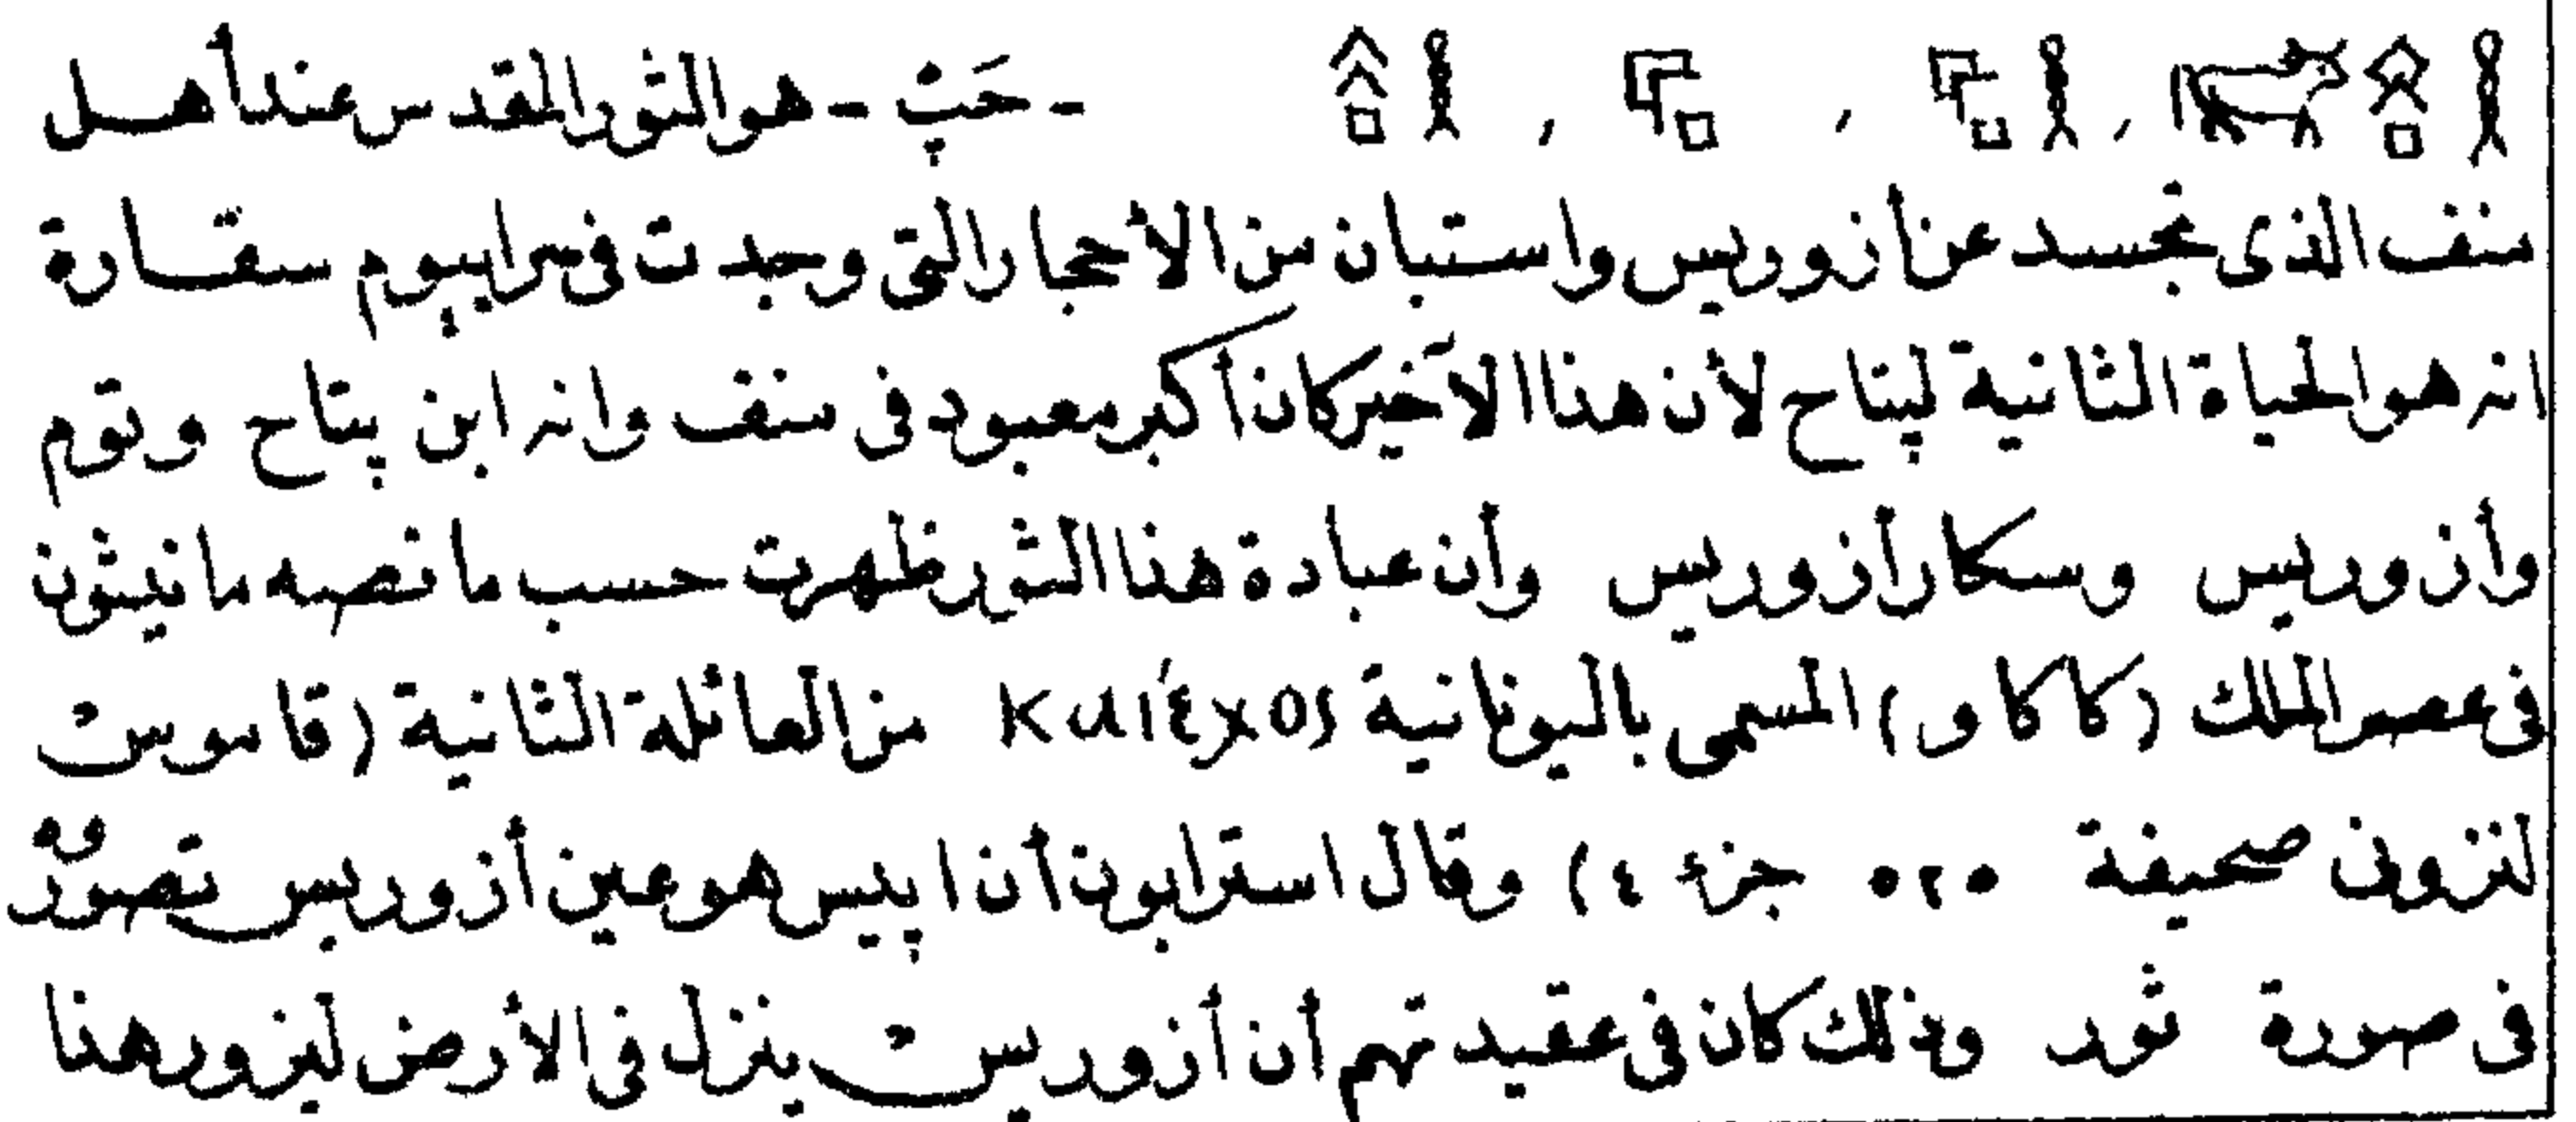 - حَپْ - هو الثور المقدس عند أهل
منف الذى تجسد عن أزوريس واستبان من الأحجار التى وجدت فى سرابيوم سقارة
انه هو الحياة الثانية لپتاح لأن هذا الأخير كان أكبر معبود فى منف وانه ابن پتاح وتوم
وأزوريس وسكار أزوريس وأن عبادة هذا الثور ظهرت حسب ما نصه مانيثون
فى عصر الملك (كاكاو) المسمى باليونانية Καιέχος من العائلة الثانية (قاموس
لنزون صحيفة ٥٢٥ جزء ٤) وقال استرابون أن اپيس هو عين أزوريس تصوّر
فى صورة ثور وذلك كان فى عقيدتهم أن أزوريس ينزل فى الأرض ليزور هذا